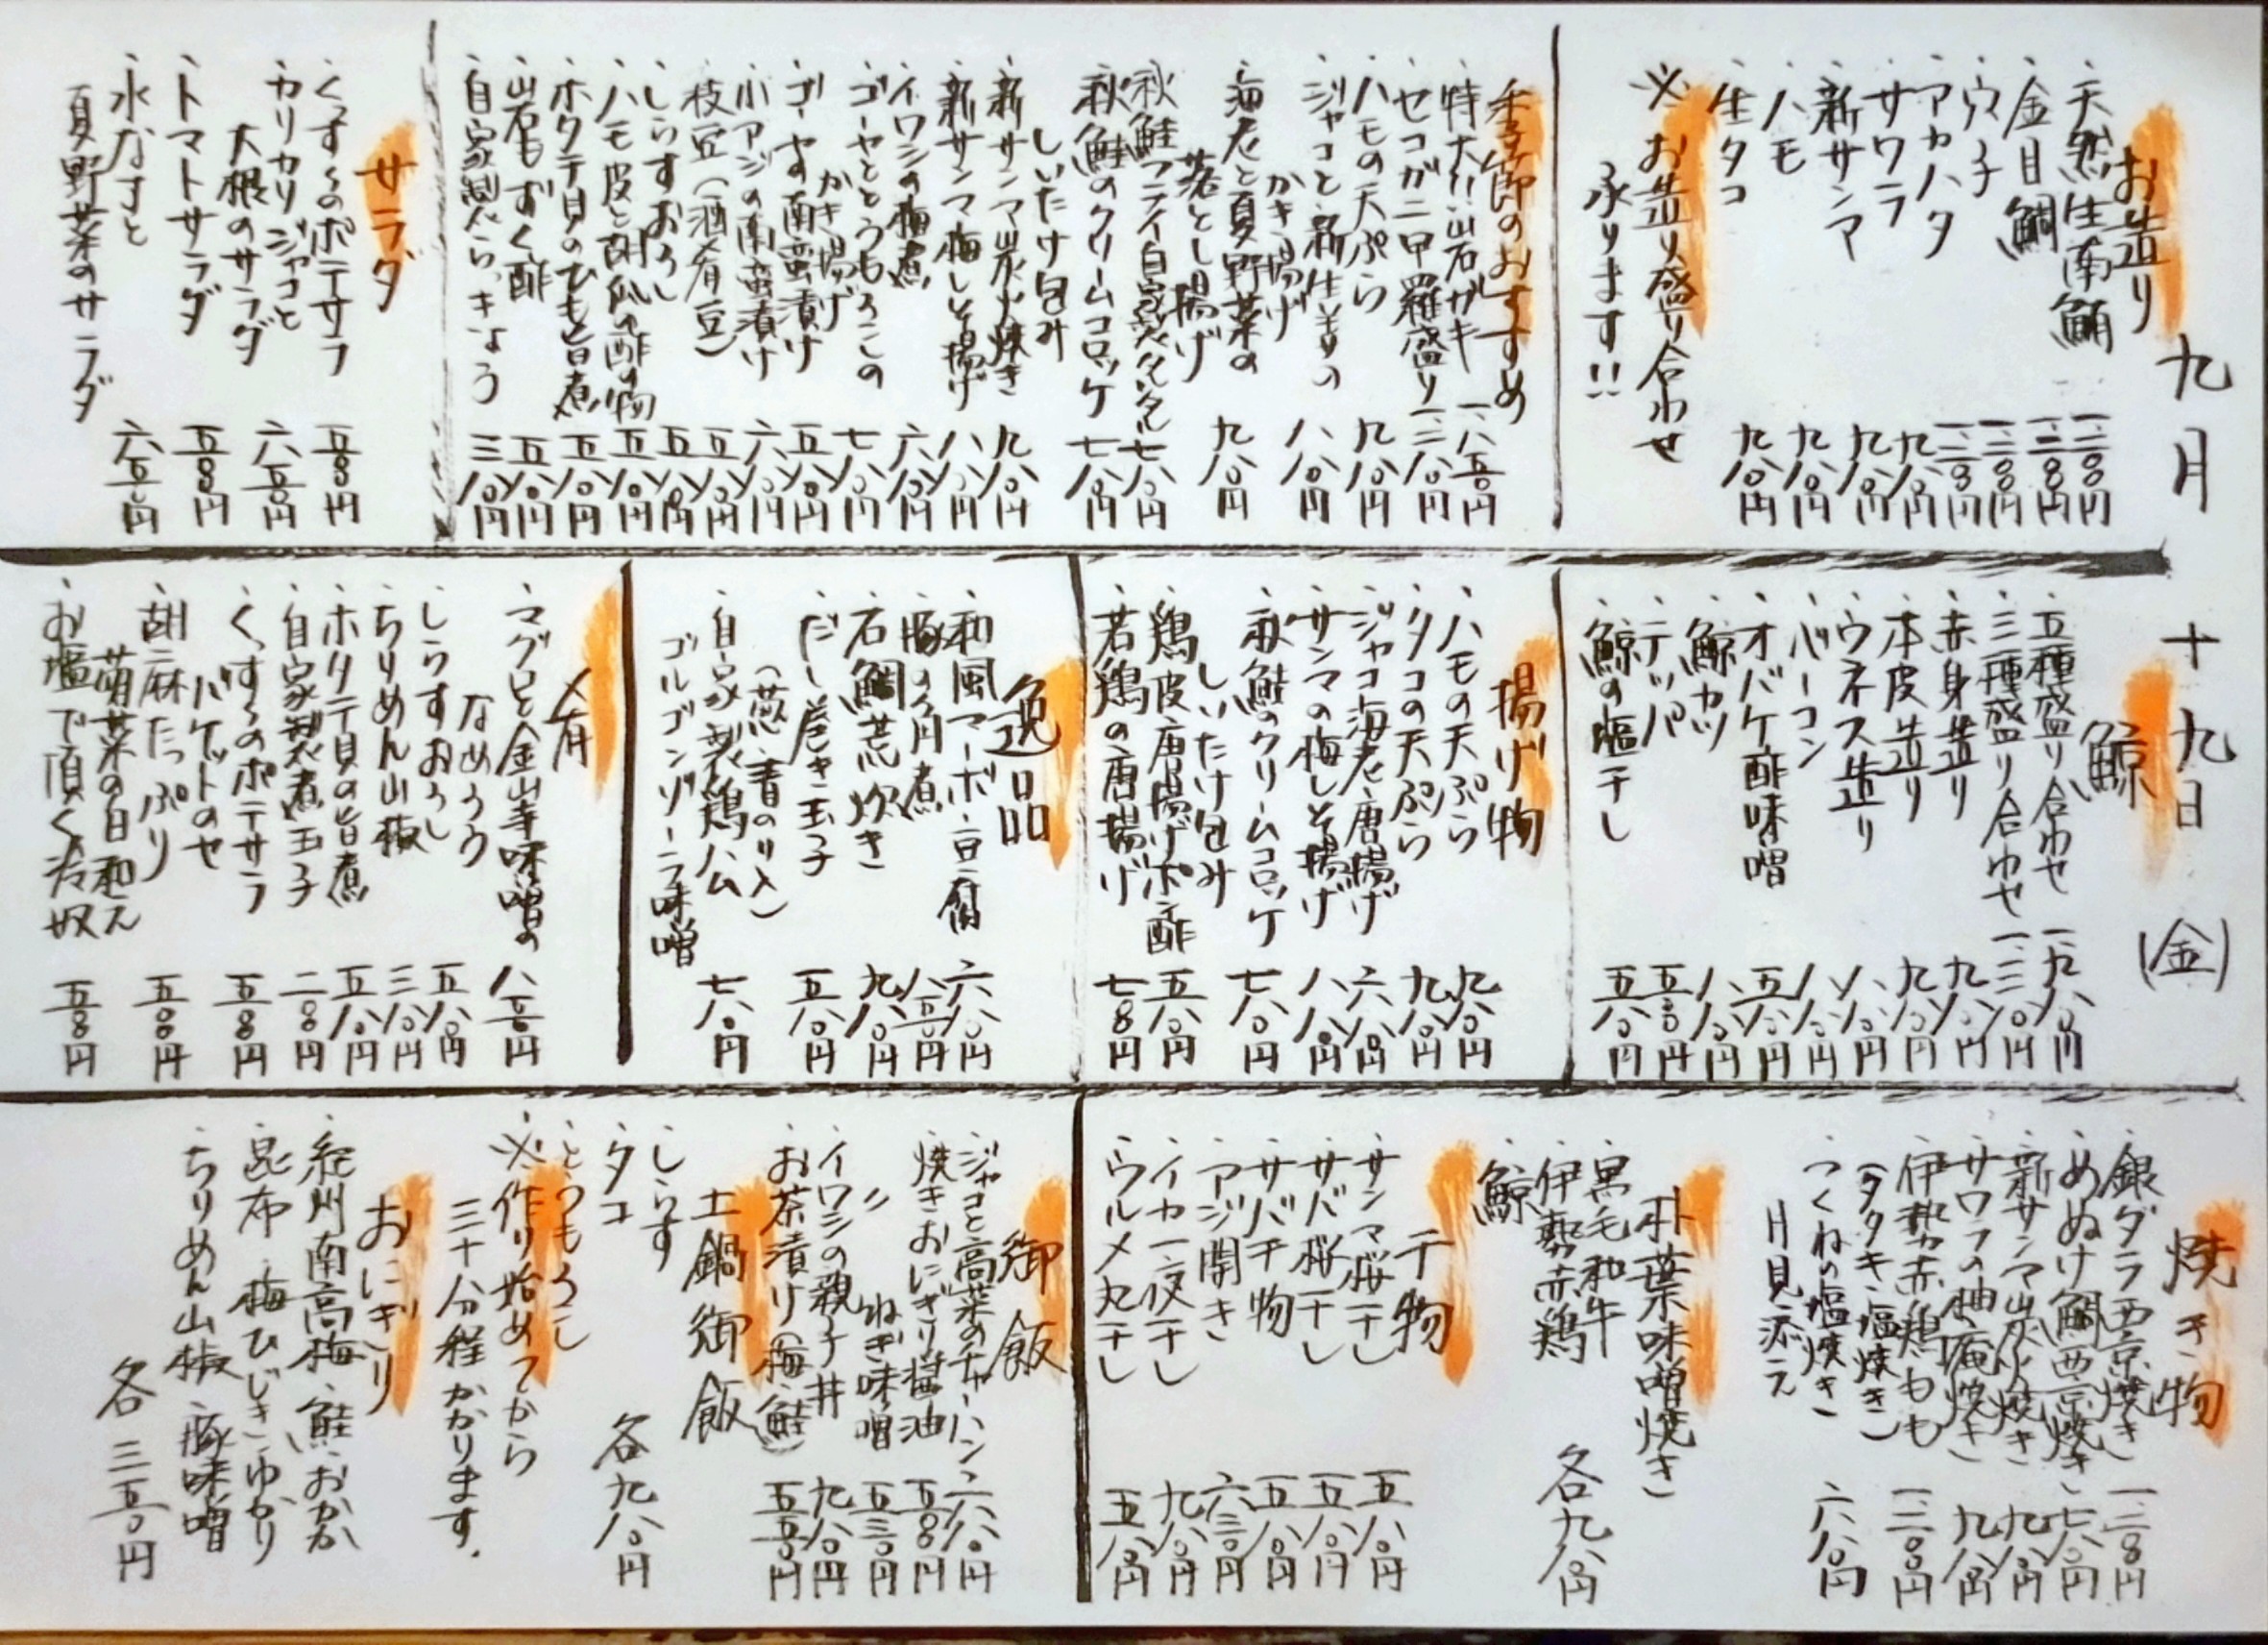 九月十九日(金)
お造り
・天然生南鮪 一二〇〇円
・金目鯛 一二〇〇円
・ウニ 一二〇〇円
・アカハタ 一二〇〇円
・サワラ 九八〇円
・新サンマ 九八〇円
・ハモ 九八〇円
・生タコ 九八〇円
※お造り盛り合わせ
承ります!!
季節のおすすめ
・特大!!岩ガキ 一、八五〇円
・セコガニ甲羅盛り 一、三八〇円
・ハモの天ぷら 九八〇円
・ジャコと新生姜の
かき揚げ 八八〇円
・海老と夏野菜の
落とし揚げ 九八〇円
・秋鮭フライ自家製タルタル 七八〇円
・秋鮭のクリームコロッケ 七八〇円
しいたけ包み
・新サンマ炭火焼き 九八〇円
・新サンマ梅しそ揚げ 八八〇円
・イワシの梅煮 六八〇円
・ゴーヤととうもろこしの
かき揚げ 七八〇円
・ゴーヤ南蛮漬け 五八〇円
・小アジの南蛮漬け 六八〇円
・枝豆(酒肴豆) 五八〇円
・しらすおろし 五八〇円
・ハモ皮と胡瓜の酢の物 五八〇円
・ホタテ貝のひも旨煮 五八〇円
・岩もずく酢 五八〇円
・自家製らっきょう 三八〇円
サラダ
・くずし〜のポテサラ 五〇〇円
・カリカリジャコと
大根のサラダ 六五〇円
・トマトサラダ 五〇〇円
・水なすと
夏野菜のサラダ 六五〇円
鯨
・五種盛り合わせ 一、九八〇円
・三種盛り合わせ 一、三八〇円
・赤身造り 九八〇円
・本皮造り 九八〇円
・ウネス造り 八八〇円
・ベーコン 八八〇円
・オバケ酢味噌 五八〇円
・鯨カツ 八八〇円
・テッパ 五五〇円
・鯨の塩干し 五八〇円
揚げ物
・ハモの天ぷら 九八〇円
・タコの天ぷら 九八〇円
・ジャコ海老唐揚げ 六八〇円
・サンマの梅しそ揚げ 八八〇円
・秋鮭のクリームコロッケ
しいたけ包み 七八〇円
・鶏皮唐揚げポン酢 五八〇円
・若鶏の唐揚げ 七〇〇円
逸品
・和風マーボー豆腐 六八〇円
・豚の角煮 八五〇円
・石鯛荒炊き 九八〇円
・だし巻き玉子 五八〇円
(葱・青のり入)
・自家製鶏ハム 七八〇円
ゴルゴンゾーラ味噌
肴
・マグロと金山寺味噌の
なめろう 八五〇円
・しらすおろし 五八〇円
・ちりめん山椒 三八〇円
・ホタテ貝の旨煮 五八〇円
・自家製煮玉子 二〇〇円
・くずし〜のポテサラ
バゲットのせ 五〇〇円
・胡麻たっぷり
青菜の白和え 五〇〇円
・お塩で頂く冷奴 五〇〇円
焼き物
・銀ダラ西京焼き 一二〇〇円
・めぬけ鯛西京焼き 七八〇円
・新サンマ炭火焼き 九八〇円
・サワラの柚庵焼き 九八〇円
・伊勢赤鶏もも 一二〇〇円
(タタキ・塩焼き)
・つくねの塩焼き 六八〇円
月見添え
朴葉味噌焼き
・黒毛和牛
・伊勢赤鶏 各九八〇円
・鯨
干物
・サンマ桜干し 五八〇円
・サバ桜干し 五八〇円
・サバ干物 五八〇円
・アジ開き 六三〇円
・イカ一夜干し 九八〇円
・ウルメ丸干し 五八〇円
御飯
・ジャコと高菜のチャーハン 六八〇円
・焼きおにぎり醤油 五〇〇円
・〃 ねぎ味噌 五三〇円
・イワシの親子丼 九八〇円
・お茶漬け(梅・鮭) 五五〇円
土鍋御飯
・しらす
・タコ 各九八〇円
・とうもろこし
※作り始めてから
三十分程かかります.
おにぎり
・紀州南高梅・鮭・おかか
・昆布・梅ひじき・ゆかり
・ちりめん山椒・豚味噌
各 三五〇円